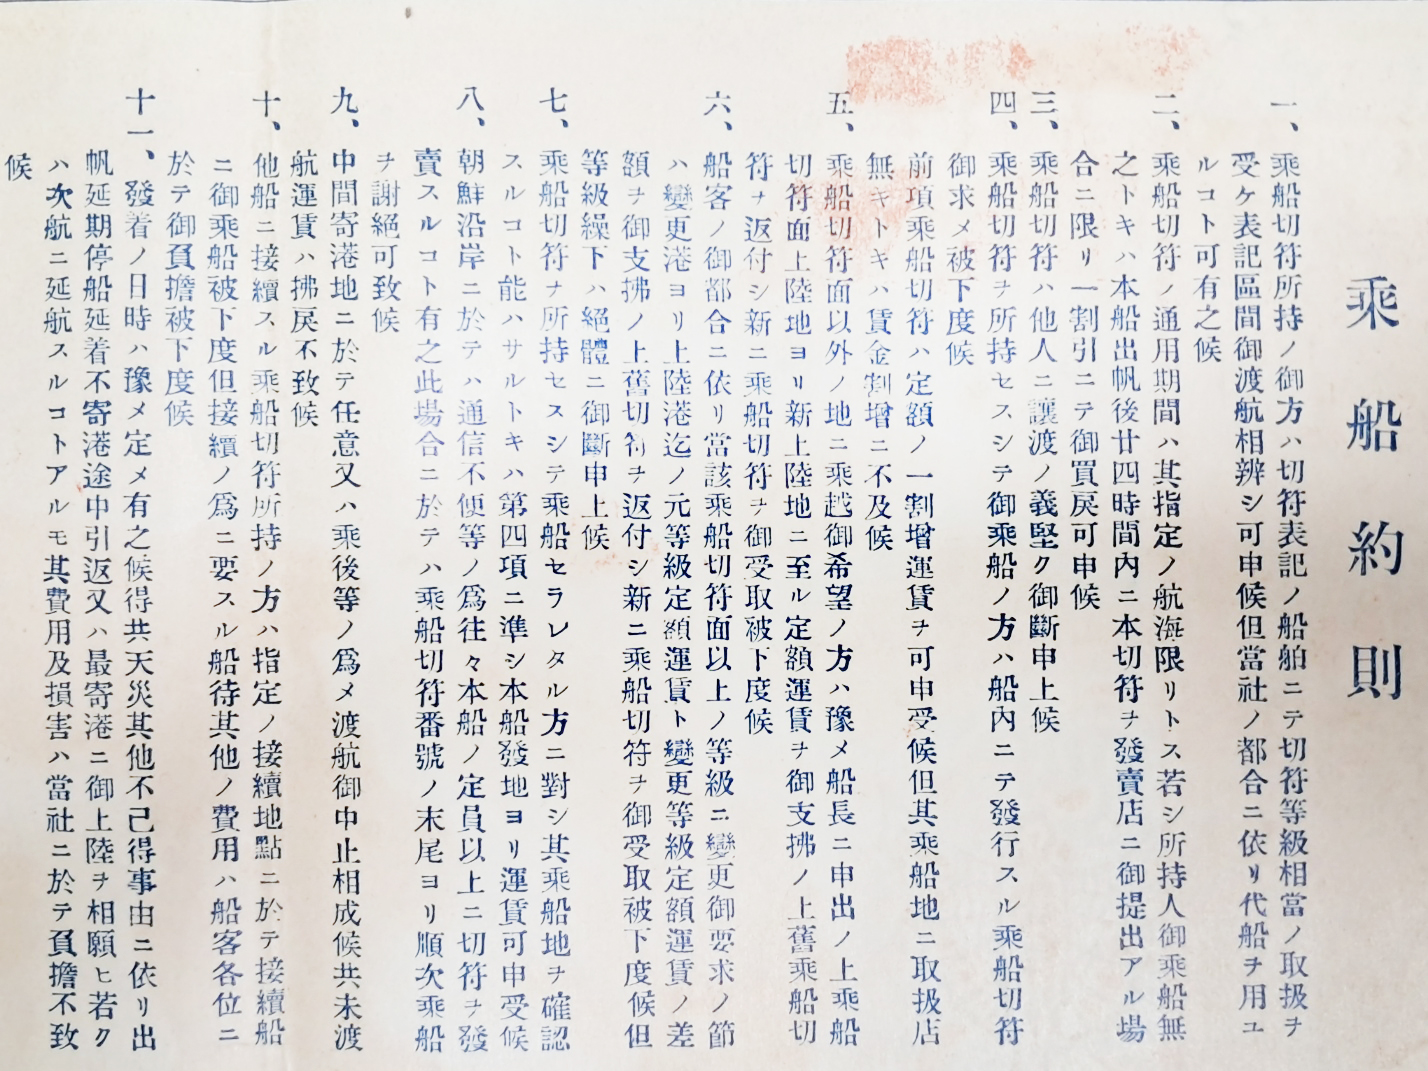 乘船約則
一、乘船切符所持ノ御方ハ切符表記ノ船舶ニテ切符等級相當ノ取扱ヲ
受ケ表記區間御渡航相辨シ可申候但當社ノ都合ニ依リ代船ヲ用ユ
ルコト可有之候
二、乘船切符ノ通用期間ハ其指定ノ航海限リトス若シ所持人御乘船無
之トキハ本船出帆後廿四時間內ニ本切符ヲ發賣店ニ御提出アル場
合ニ限リ一割引ニテ御買戾可申候
三、乘船切符ハ他人ニ讓渡ノ義堅ク御斷申上候
四、乘船切符ヲ所持セスシテ御乘船ノ方ハ船內ニテ發行スル乘船切符
御求メ被下度候
前項乘船切符ハ定額ノ一割增運賃ヲ可申受候但其乘船地ニ取扱店
無キトキハ賃金割增ニ不及候
五、乘船切符面以外ノ地ニ乘越御希望ノ方ハ豫メ船長ニ申出ノ上乘船
切符面上陸地ヨリ新上陸地ニ至ル定額運賃ヲ御支拂ノ上舊乘船切
符ヲ返付シ新ニ乘船切符ヲ御受取被下度候
六、船客ノ御都合ニ依リ當該乘船切符面以上ノ等級ニ變更御要求ノ節
ハ變更港ヨリ上陸港迄ノ元等級定額運賃ト變更等級定額運賃ノ差
額ヲ御支拂ノ上舊切符ヲ返付シ新ニ乘船切符ヲ御受取被下度候但
等級繰下ハ絕體ニ御斷申上候
七、乘船切符ヲ所持セスシテ乘船セラレタル方ニ對シ其乘船地ヲ確認
スルコト能ハサルトキハ第四項ニ準シ本船發地ヨリ運賃可申受候
八、朝鮮沿岸ニ於テハ通信不便等ノ爲往々本船ノ定員以上ニ切符ヲ發
賣スルコト有之此場合ニ於テハ乘船切符番號ノ末尾ヨリ順次乘船
ヲ謝絕可致候
九、中間寄港地ニ於テ任意又ハ乘後等ノ爲メ渡航御中止相成候共未渡
航運賃ハ拂戾不致候
十、他船ニ接續スル乘船切符所持ノ方ハ指定ノ接續地點ニ於テ接續船
ニ御乘船被下度但接續ノ爲ニ要スル船待其他ノ費用ハ船客各位ニ
於テ御負擔被下度候
十一、發着ノ日時ハ豫メ定メ有之候得共天災其他不已得事由ニ依リ出
帆延期停船延着不寄港途中引返又ハ最寄港ニ御上陸ヲ相願ヒ若ク
ハ次航ニ延航スルコトアルモ其費用及損害ハ當社ニ於テ負擔不致
候